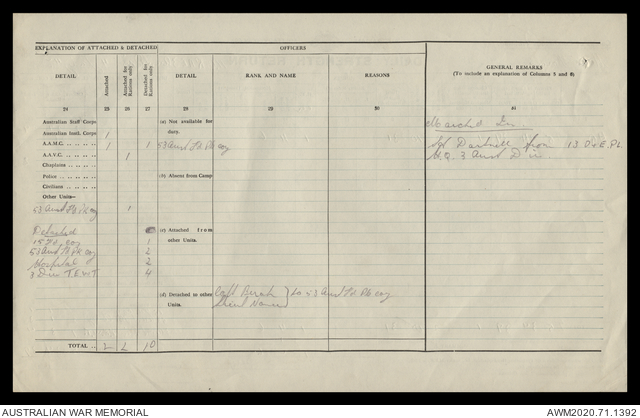 EXPLANATION OF ATTACHED & DETACHED
OFFICERS
GENERAL REMARKS
(To include an explanation of Columns 5 and 8)
DETAIL
Attached
Attached for Rations only
Detached for Rations only
DETAIL
RANK AND NAME
REASONS
24 25 26 27 28 29 30 31
Australian Staff Corps
Australian Instl. Corps 1
A.A.M.C. 1 1
A.A.V.C. 1
Chaplains
Police
Civilians
Other Units-
53 Aust Fd Pk coy 1
Detached
15 Fd coy 1
53 Aust Fd Pk coy 2
Hospital 2
3 Div T.E.W.T 4
TOTAL 2 2 10
(a) Not available for duty.
53 Aust Fd Pk coy
(b) Absent from Camp
(c) Attached from other Units.
(d) Detached to other Units.
Capt } to 53 Aust Fd Pk coy
Lieut
Marched In
from 13 D & E. Pl.
H.Q. 3 Aust Div.
AUSTRALIAN WAR MEMORIAL
AWM2020.71.1392